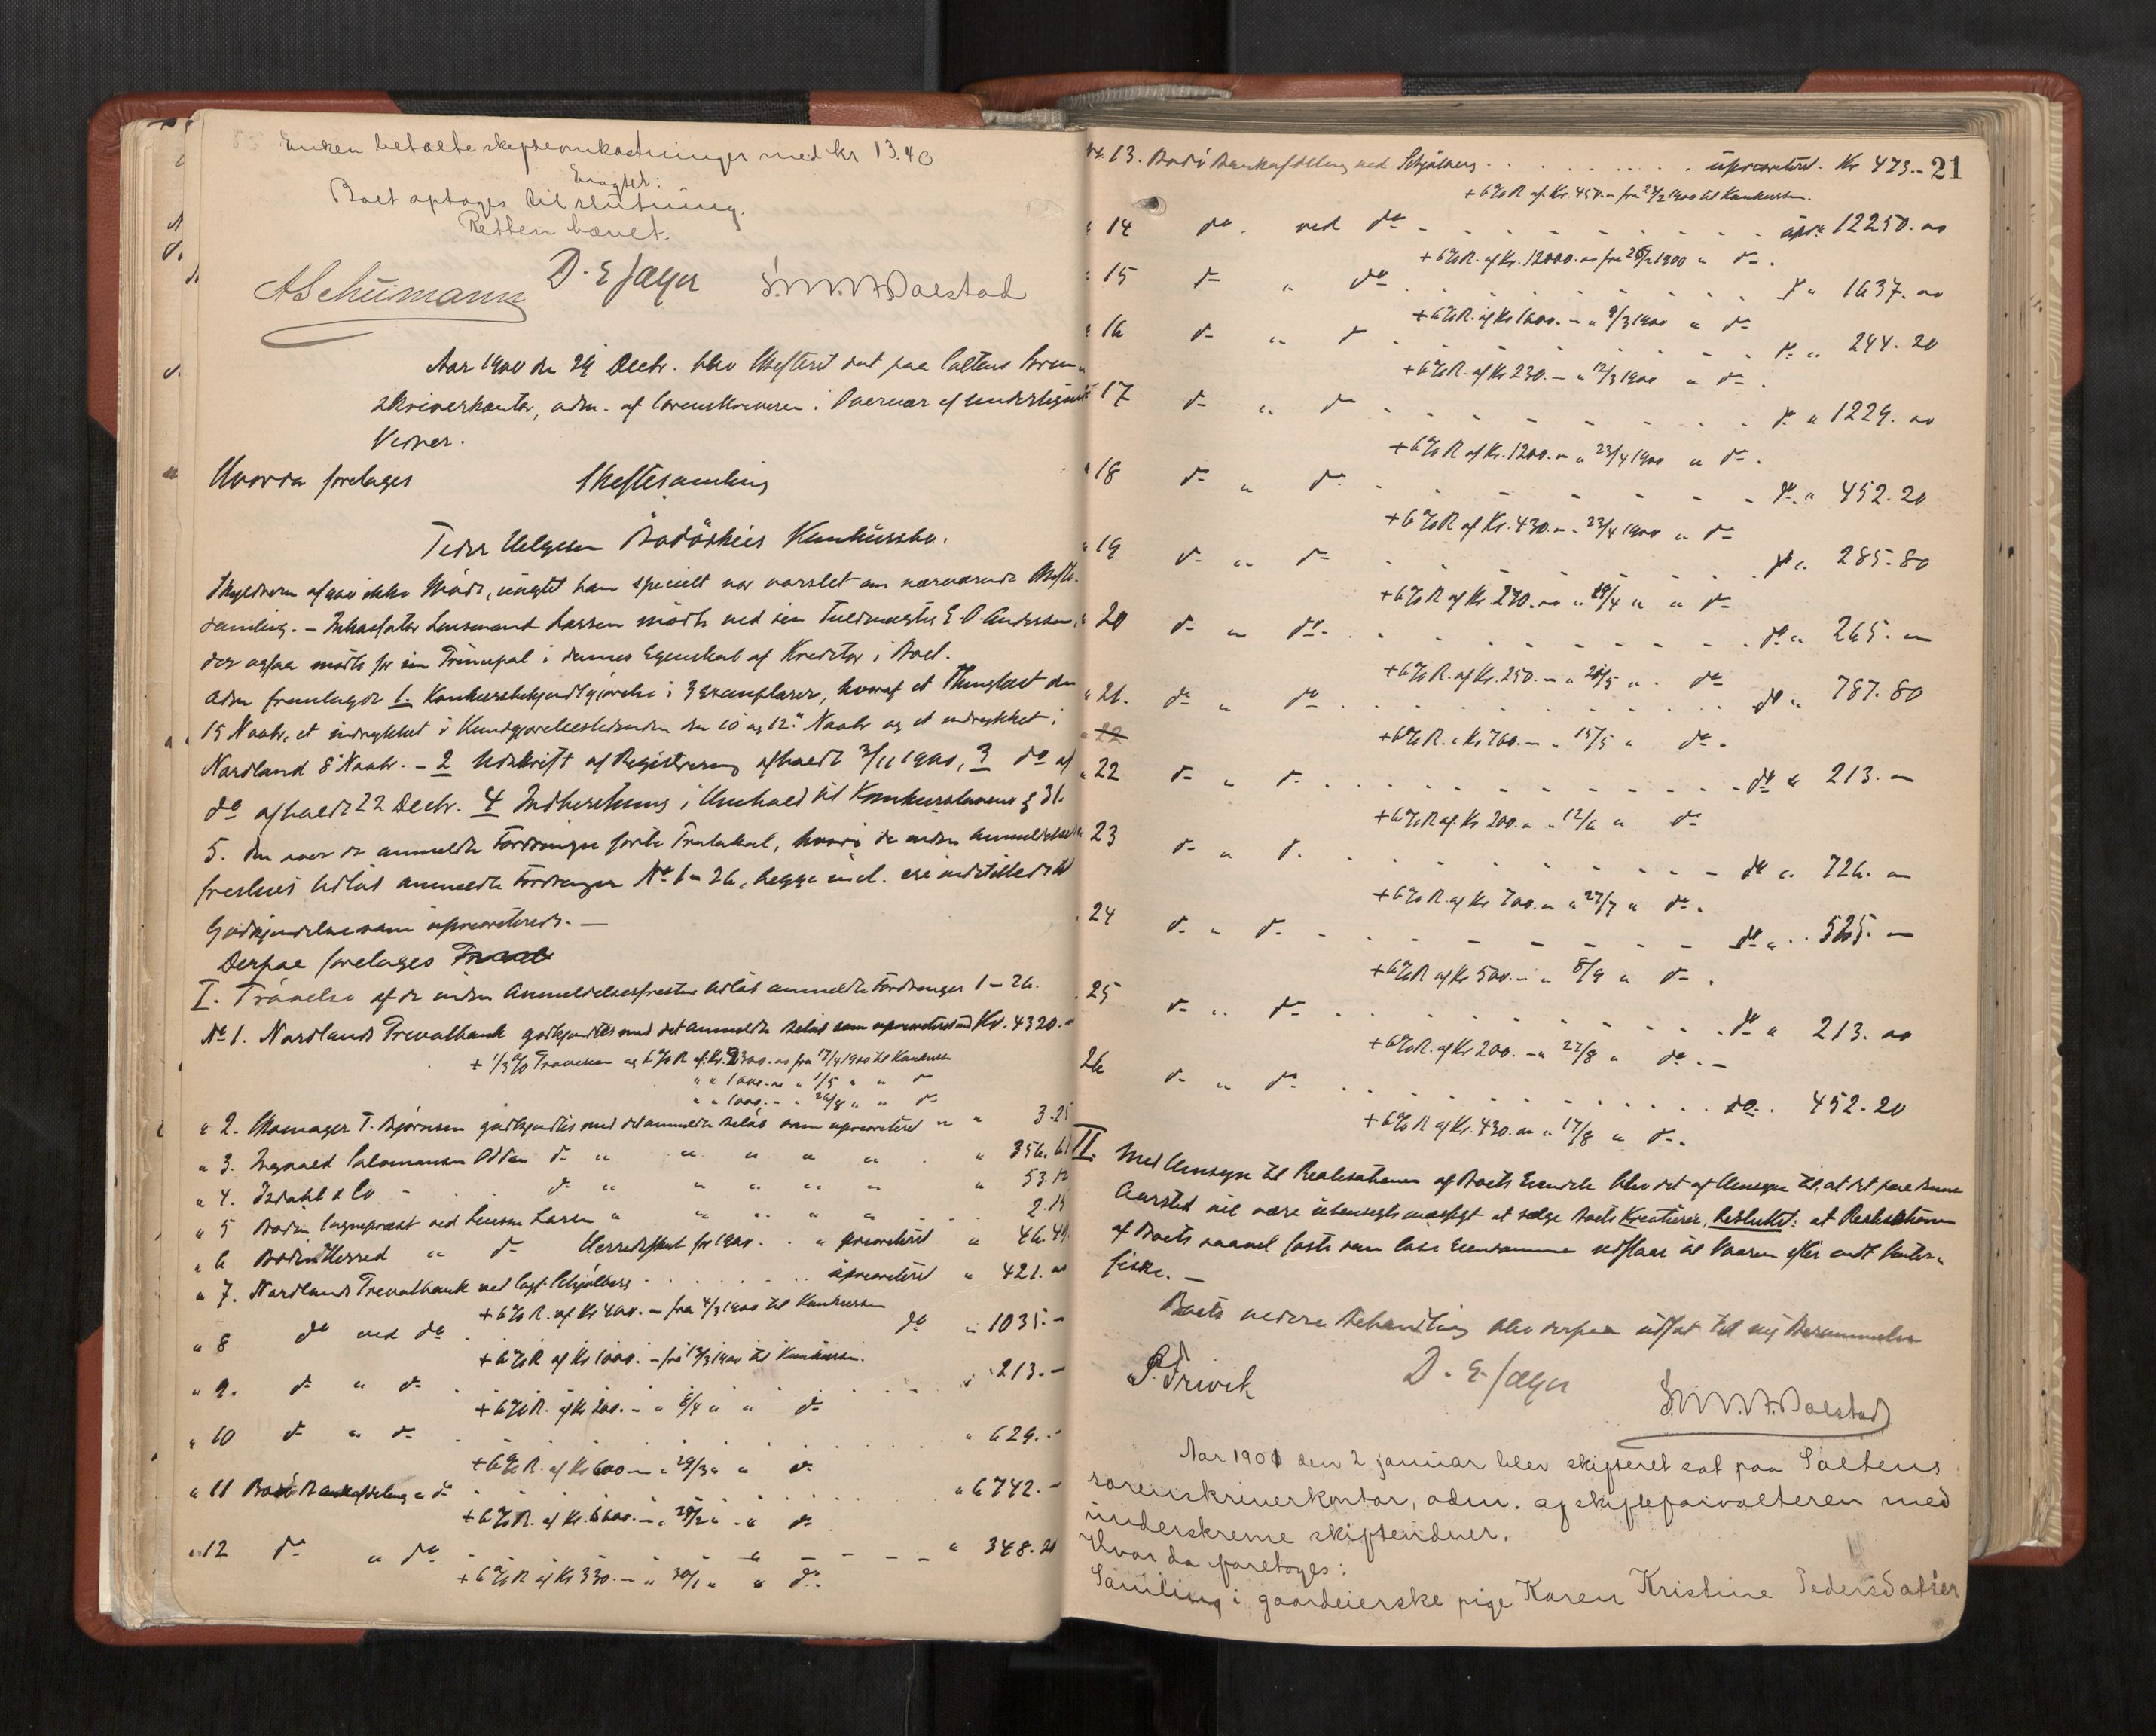 Enken betalte skifteomkostninger med kr 13.40
Eragtet:
Boet optages til slutning.
Retten hævet.
A Schumann D. E Jæger S. M. N. Valestad
Aar 1900 den 29 Decbr. blev Skifteret sat paa Saltens Soren-
skriverkontor, adm. af Sorenskriveren i Overvær af undertegnede
Vidner.
Hvorda foretoges Skiftesamling
Peder Helgesen Bodøsjøens Konkursbo.
ikke mødt, uagtet han specielt var varslet om nærværende Skifte-
samling. – Lensmand Larsen mødte ved sin Fuldmægtig E. O. Andersen,
der ogsaa mødte for sin Principal i dennes Egenskab af Kreditor i Boet.
Adm fremlagde 1. Konkursbekjendtgjørelse i 3 Exemplarer, hvoraf et Thinglæst den
15 Novbr, et indrykket i Kundgjørelsestidenden den 10 og 12. Novbr og et indrykket i
Nordland 8 Novbr. – 2 Udskrift af Registrering afholdt 3/11 1900, 3 do af
do afholdt 22 Decbr. 4 Indberetning i Henhold til Konkurslovens § 31.
5. den over de anmeldte Fordringer førte Protokol, hvori de inden Anmeldelses
fristens Udløb anmeldte Fordringer No 1 – 26, begge incl. ere indstillede til
Godkjendelse som uprioriterede. –
Derpaa foretoges
I. Prøvelse af de inden Anmeldelsesfristens Udløb anmeldte Fordringer 1 – 26.
No 1. Nordlands Privatbank godkjendtes med det anmeldte Beløb som uprioriteret med Kr. 4320.-
+ 1/3 % Provision og 6 % R af Kr. 2300.00 fra 17/4 1900 til Konkursen
" " 1000.00 " 1/5 " " do
" " 1000.- " 26/8 " " do
" 2. T. Bjørnsen godkjendtes med det anmeldte Beløb som uprioriteret " " 3.25
" 3. Ingvald Salomonsen Odden do " " " " " " 356.61
" 4. Isdahl & Co - do " " " " " " 53.12
" 5 Bodin Sogneprest ved Lensm Larsen " " " " " 2.15
" 6 Bodin Herred " do Herredsskat for 1900 . . " prioritert " 46.49
" 7. Nordlands Privatbank ved Sagf. Schjølberg . . . . . uprioriteret " 421.00
+ 6 % R. af Kr 400.- fra 4/3 1900 til Konkursen
" 8 do ved do . do " 1035.-
+ 6 % R af Kr 1000.- fra 13/3 1900 til Konkursen.
" 9. do " do . 213.-
+ 6 % R. af Kr 200.- " 6/4 " " do
" 10 do " do . " 629.-
+ 6 % R. af Kr 600.- " 29/3 " " do
" 11 Bodø Bankafdeling " do . " 6742.-
+ 6 % R. af Kr. 6600.- " 28/2 " " do
" 12 do " do . " 348.20
+ 6 % R af Kr 330.- " 30/1 " " do.
21
No. 13. Bodø Bankafdeling ved Schjølberg . . . . . . uprioriteret. Kr 473.-
+ 6 % R af Kr. 450.- fra 27/2 1900 til Konkursen.
" 14 do. ved do . . . . upr. 12250.00
+ 6 % R. af Kr. 12000.00 fra 26/2 1900 " do.
" 15 do " do . do " 1637.00
+ 6 % R. af Kr 1600.- " 9/3 1900 " do
" 16 do " do . do " 244.20
+ 6 % R. af Kr 230.- " 12/3 1900 " do.
" 17 do " do . do " 1229.00
+ 6 % R af Kr. 1200.- " 23/4 1900 " do.
" 18 do " do . do " 452.20
+ 6 % R af Kr. 430.- " 23/4 1900 " do
" 19 do " do . do " 285.80
+ 6 % R af Kr. 270.00 " 29/4 " " do
" 20 do " do . do " 265.-
+ 6 % R. af Kr. 250.- " 26/5 " . do
" 21. do " do . do " 787.80
+ 6 % R. " Kr 760.- " 15/5 " do.
" 22
" 22 do " do . do " 213.-
+ 6 % R af Kr 200.- " 12/6 " do
" 23 do " do. do " 726.-
+ 6 % R. af Kr 700.- " 27/7 " do.
" 24 do " do . do " 525.-
+ 6 % R af Kr 500.- " 8/9 " do.
" 25 do " do . do " 213.00
+ 6 % R. af Kr 200.- " 27/8 " do.-
26 do " do . do. 452.20
+ 6 % R af Kr. 430.00 " 17/8 " do.
II. Med Hensyn til Realisationen af Boets Eiendele blev det af Hensyn til, at det paa denne
Aarstid vil være uhensigtsmæssigt at sælge Boets Kreaturer, besluttet: at Realisationen
af Boets saavel faste som løse Eiendomme udstaar til Vaaren efter endt Vinter-
fiske. –
Boets videre Behandling blev derpaa udsat til ny Berammelse
P. Trivik D. E. Jæger S. M. N. Valestad
Aar 1901 den 2 januar blev skifteret sat paa Saltens
sorenskriverkontor, adm. af skifteforvalteren med
underskrevne skiftevidner.
Hvor da foretoges:
Samling i gaardeierske pige Karen Kristine Pedersdatter